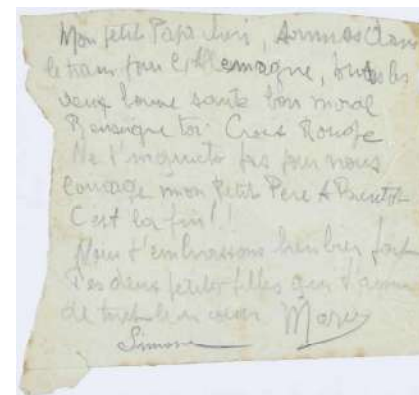 Mon petit Papa cheri, sommes dans
le train pour l'Allemagne, toutes les
deux bonne santé bon moral
Renseigne toi Croix Rouge
Ne t'inquiete pas pour nous
Courage mon petit Père A Bientôt
C'est la fin!!
Nous t'embrassons bien bien fort
Tes deux petites filles qui t'aiment
de tout leur cœur Marie
Simone